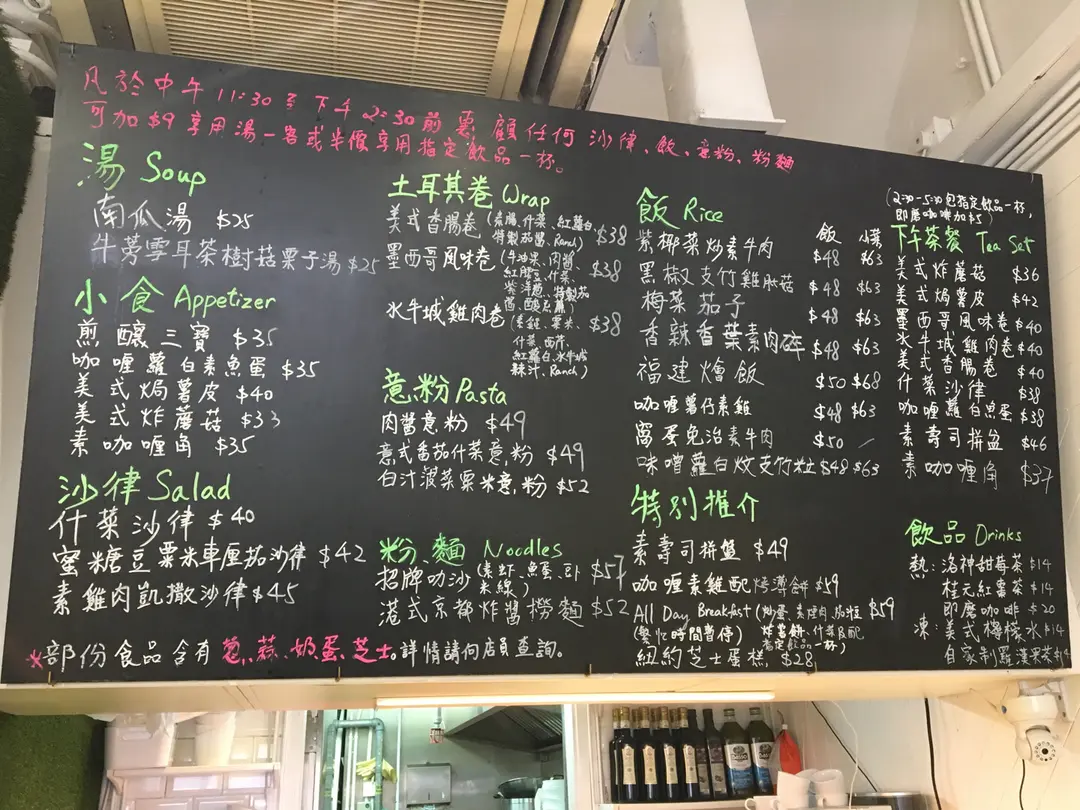 凡於中午 11:30 至 下午 2:30 前 惠顧任何 沙律、飯、意粉、粉麵
可加 $9 享用湯一客或半價享用指定飲品一杯。
湯 Soup
南瓜湯 $25
牛蒡雪耳茶樹菇栗子湯 $25
小食 Appetizer
煎釀三寶 $35
咖喱蘿白素魚蛋 $35
美式焗薯皮 $40
美式炸蘑菇 $33
素咖喱角 $35
沙律 Salad
什菜沙律 $40
蜜糖豆粟米車厘茄沙律 $42
素雞肉凱撒沙律 $45
土耳其卷 Wrap
美式香腸卷 (素腸、什菜、紅蘿白 $38
特製茄醬、Ranch)
墨西哥風味卷 (牛油果、肉醬、 $38
紅腰豆、什菜、
紫洋蔥、特製茄
醬、酸忌廉)
水牛城雞肉卷 (素雞、粟米、 $38
什菜、西芹、
紅蘿白、水牛城
辣汁、Ranch)
意粉 Pasta
肉醬意粉 $49
意式番茄什菜意粉 $49
白汁菠菜粟米意粉 $52
粉、麵 Noodles
招牌叻沙 (素蝦、魚蛋、卧 $57
米線)
港式京都炸醬撈麵 $52
飯 Rice
飯 小菜
紫椰菜炒素牛肉 $48 $63
黑椒支竹雞肶菇 $48 $63
梅菜茄子 $48 $63
香辣香葉素肉碎 $48 $63
福建燴飯 $50 $68
咖喱薯仔素雞 $48 $63
窩蛋免治素牛肉 $50 /
味噌蘿白炆支竹粒 $48 $63
特別推介
素壽司拼盤 $49
咖喱素雞配烤薄餅 $59
All Day Breakfast (炒蛋、素煙肉、腸粒 $59
(繁忙時間暫停) 炸薯餅、什菜良配
指定飲品一杯)
紐約芝士蛋糕 $28
(2:30-5:30 包指定飲品一杯,
即磨咖啡加$5)
下午茶餐 Tea Set
美式炸蘑菇 $36
美式焗薯皮 $42
墨西哥風味卷 $40
水牛城雞肉卷 $40
美式香腸卷 $40
什菜沙律 $38
咖喱蘿白魚蛋 $38
素壽司拼盤 $46
素咖喱角 $37
飲品 Drinks
熱: 洛神甜莓茶 $14
桂元紅棗茶 $14
即磨咖啡 $20
凍: 美式檸檬水 $14
自家制羅漢果茶 $14
*部份食品含有蔥、蒜、奶、蛋、芝士。詳情請向店員查詢。